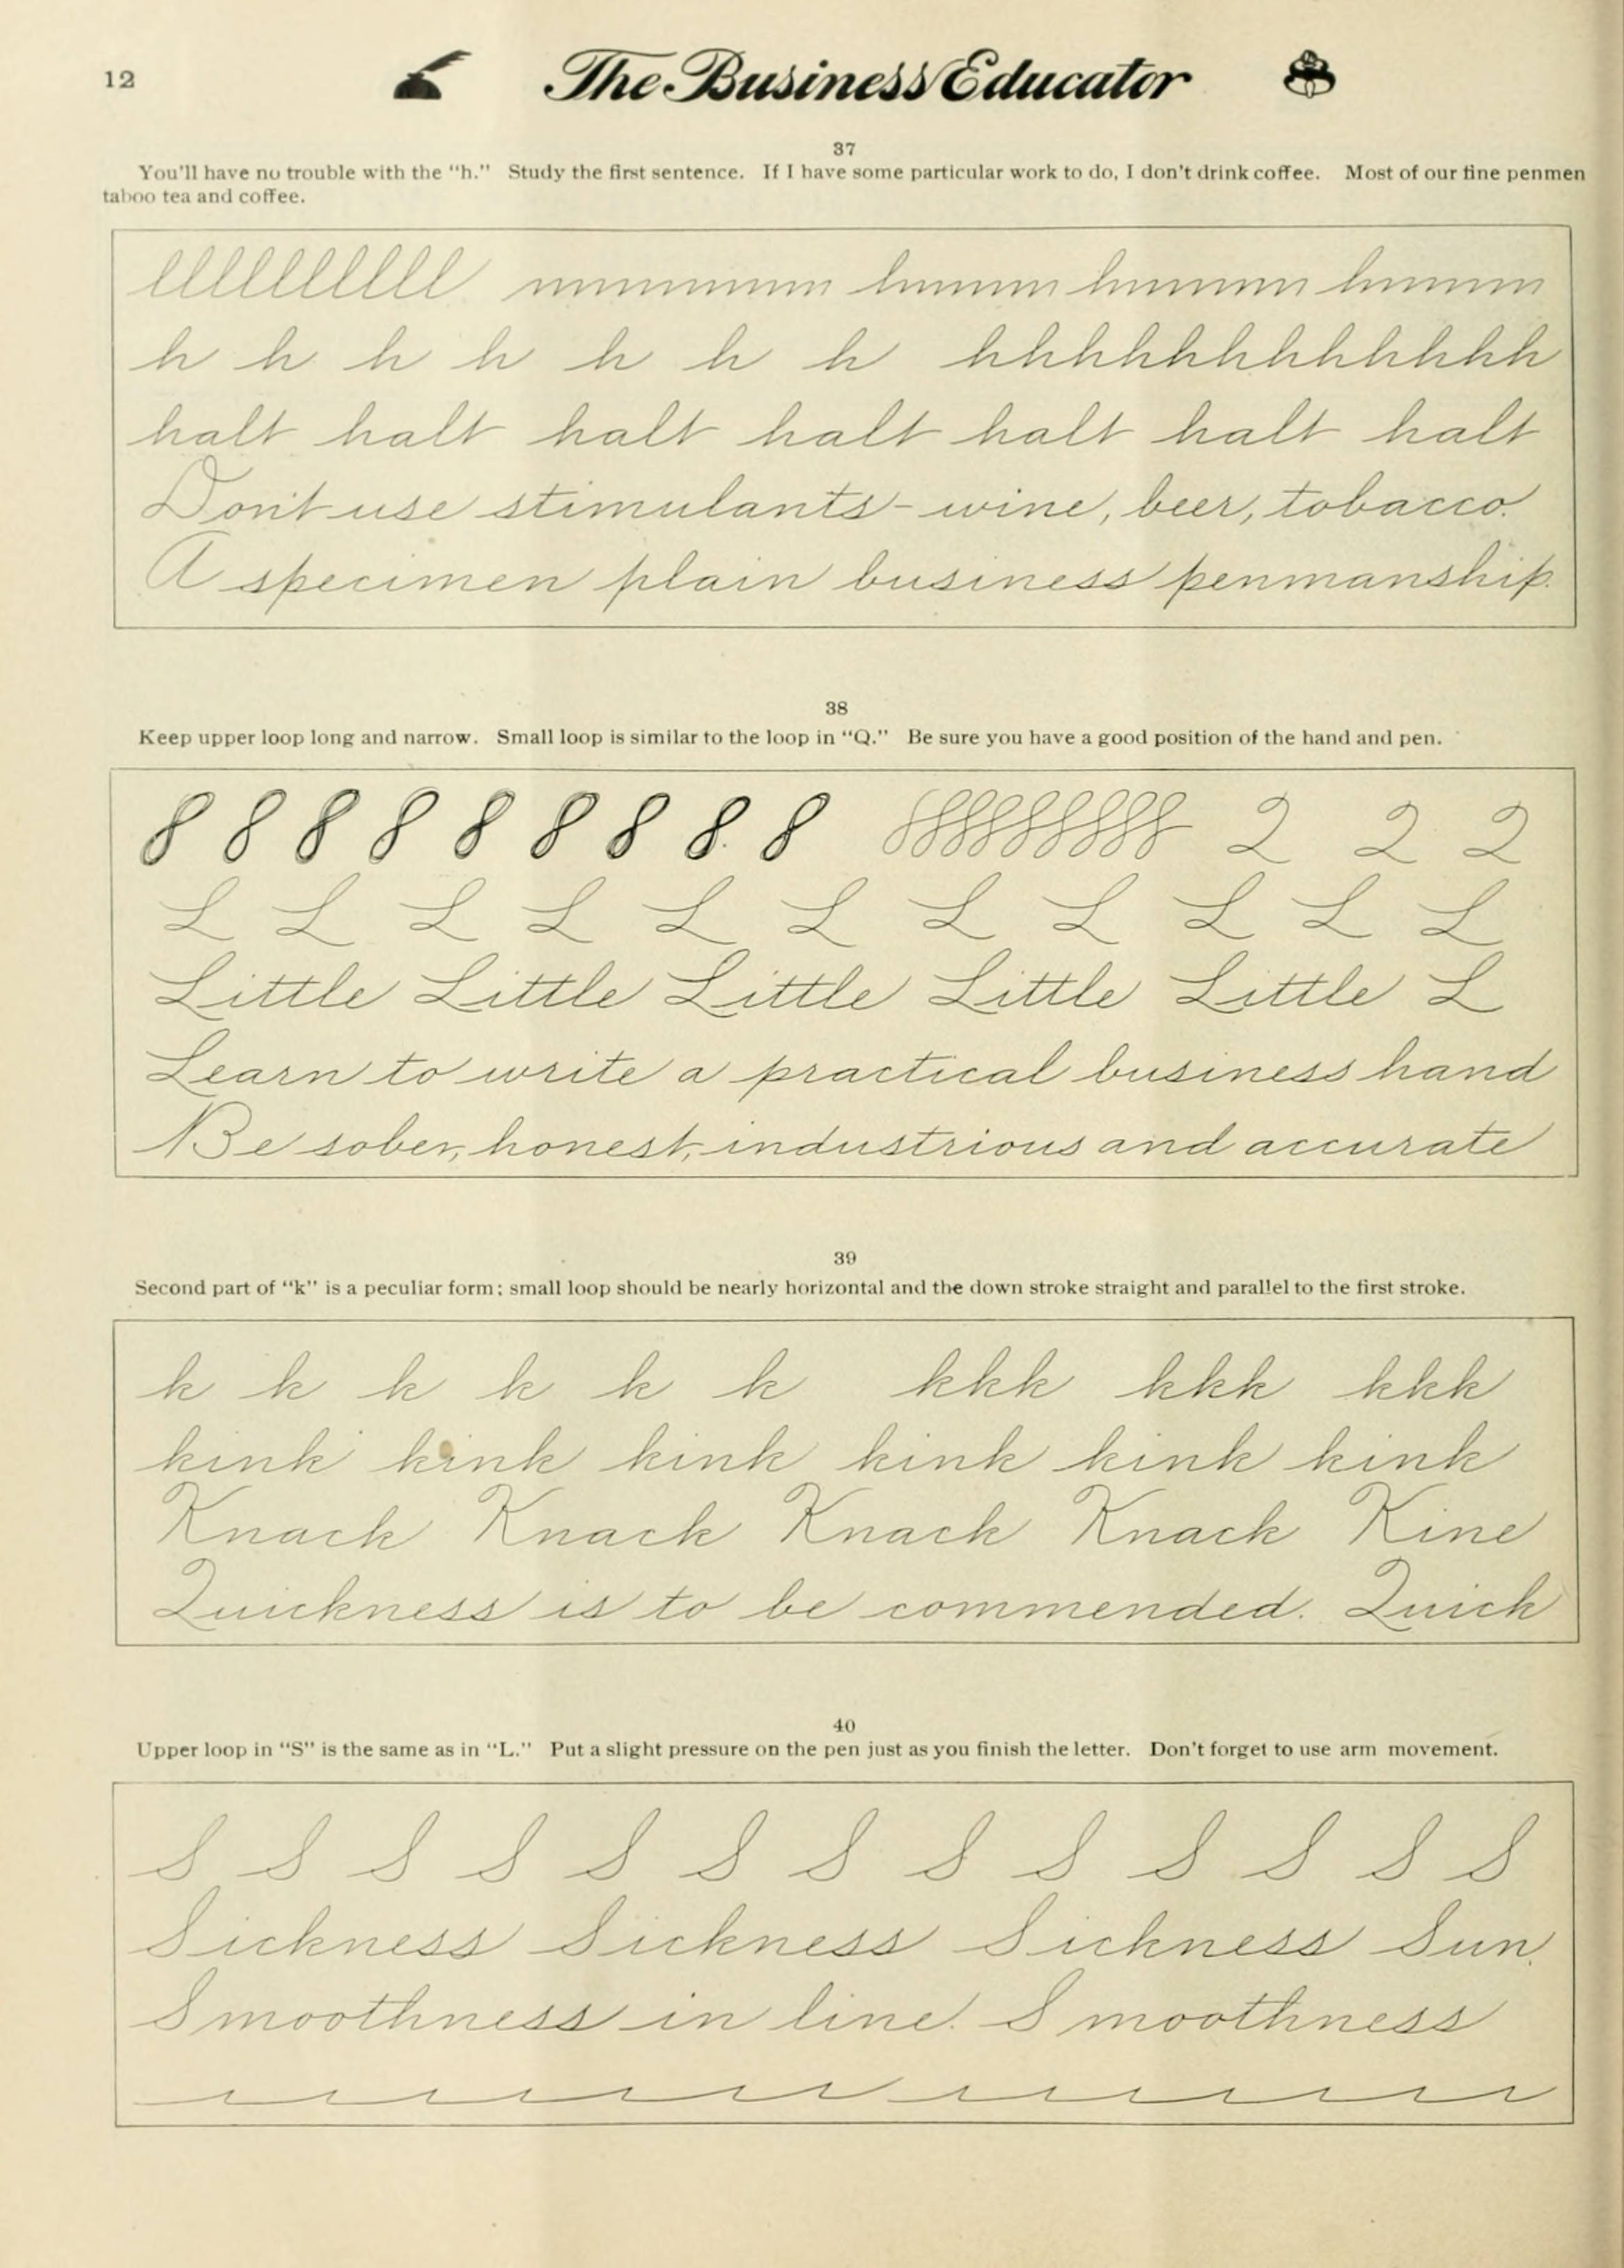 12
The Business Educator
37
You'll have no trouble with the "h." Study the first sentence. If I have some particular work to do, I don't drink coffee. Most of our fine penmen
taboo tea and coffee.
llllllllll mmmmmm hmmmm hmmmm hmmmm
h h h h h h h hhhhhhhhhhhh
halt halt halt halt halt halt halt
Don't use stimulants - wine, beer, tobacco.
A specimen plain business penmanship.
38
Keep upper loop long and narrow. Small loop is similar to the loop in "Q." Be sure you have a good position of the hand and pen.
8 8 8 8 8 8 8 8 8 8888888888 2 2 2
L L L L L L L L L L L
Little Little Little Little Little L
Learn to write a practical business hand
Be sober, honest, industrious and accurate
39
Second part of "k" is a peculiar form; small loop should be nearly horizontal and the down stroke straight and parallel to the first stroke.
k k k k k k kkk kkk kkk
kink kink kink kink kink kink
Knack Knack Knack Knack Kine
Quickness is to be commended. Quick
40
Upper loop in "S" is the same as in "L." Put a slight pressure on the pen just as you finish the letter. Don't forget to use arm movement.
S S S S S S S S S S S S S
Sickness Sickness Sickness Sun.
Smoothness in line. Smoothness